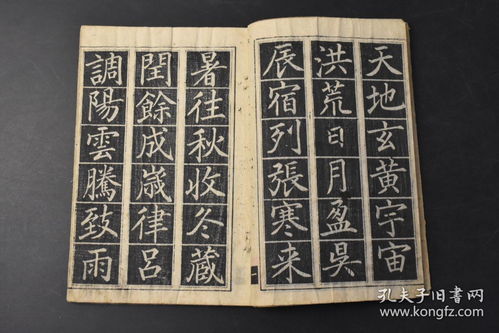 天地玄黄宇宙
洪荒日月盈昃
辰宿列張寒来
暑往秋收冬藏
閏餘成歲律呂
調陽雲騰致雨
孔夫子旧书网
www.kongfz.com